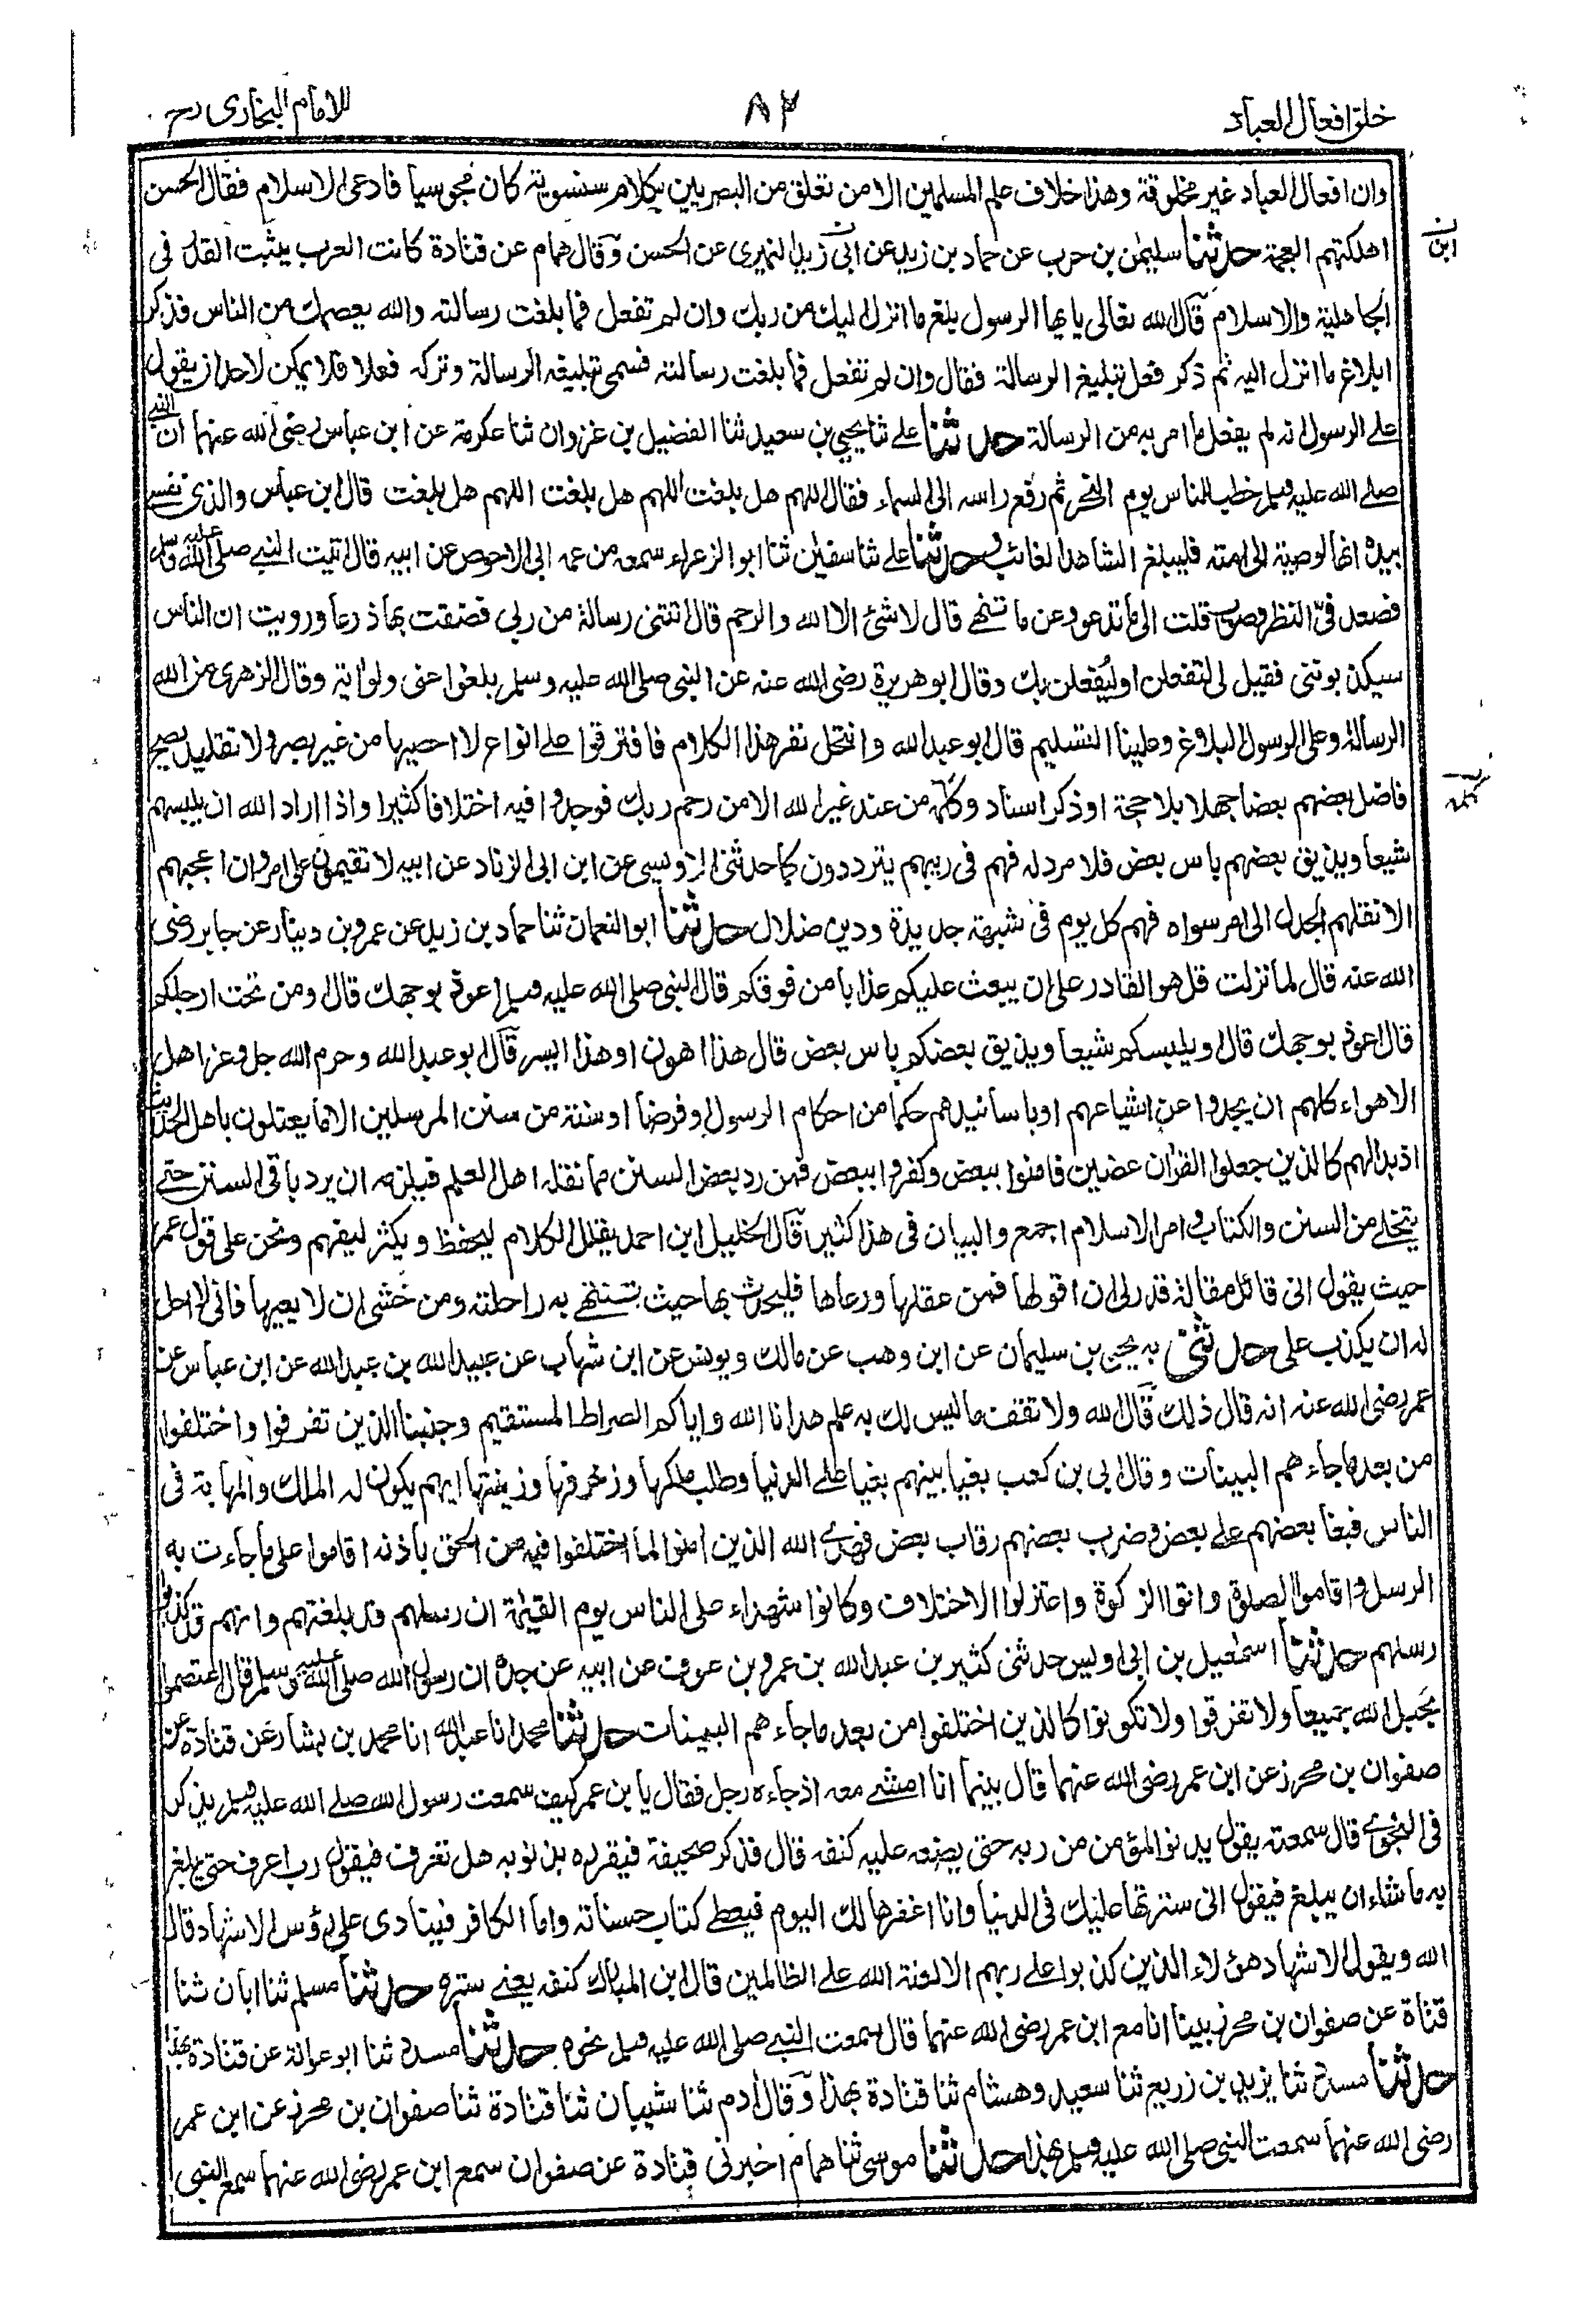 خلق افعال العباد
٨٢
للامام البخاری رح
وان افعال العباد غير مخلوقة وهذا خلاف علم المسلمين الا من تعلق من البصريين بكلام سنسوية كان مجوسيا فادعى الاسلام فقال الحسن
اهلكتهم العجمة حدثنا سليمٰن بن حرب عن حماد بن زيد عن ابی زيد النميری عن الحسن وقال همام عن قتادة كانت العرب يثبت القدر فی
ابن
الجاهلية والاسلام قال الله تعالى يايها الرسول بلغ ما انزل اليك من ربك وان لم تفعل فما بلغت رسالته والله يعصمك من الناس فذكر
ابلاغ ما انزل اليه ثم ذكر فعل تبليغ الرسالة فقال وان لم تفعل فما بلغت رسالته فسمى تبليغه الرسالة وتركه فعلا فلا يمكن لاحد ان يقول
على الرسول انه لم يفعل ما امر به من الرسالة حدثنا على ثنا يحيى بن سعيد ثنا الفضيل بن غزوان ثنا عكرمة عن ابن عباس رضی الله عنهما ان النبی
صلى الله عليه وسلم خطب الناس يوم النحر ثم رفع راسه الى السماء فقال اللهم هل بلغت اللهم هل بلغت اللهم هل بلغت قال ابن عباس والذی نفسی
بيده انها لوصية الى امته فليبلغ الشاهد الغائب و حدثنا على ثنا سفيٰن ثنا ابو الزعراء سمعه من عمه ابی الاحوص عن ابيه قال اتيت النبی صلى الله عليه وسلم
فصعد فیّ النظر وصوب قلت الى ما تدعو وعن ما تنهى قال لا شئ الا الله والرحم قال اتتنی رسالة من ربی فضقت بها ذرعا ورويت ان الناس
سيكذبوننی فقيل لی لتفعلن او ليُفعلن بك وقال ابو هريرة رضی الله عنه عن النبی صلى الله عليه وسلم بلغوا عنی ولو اية وقال الزهری من الله
الرسالة وعلى الرسول البلاغ وعلينا التسليم قال ابو عبد الله وانتحل نفر هذا الكلام فافترقوا على انواع لا احصيها من غير بصر ولا تقليد يصح
فاضل بعضهم بعضا جهلا بلا حجة او ذكر اسناد وكله من عند غير الله الا من رحم ربك فوجدوا فيه اختلافا كثيرا واذا اراد الله ان يلبسهم
شيعا ويذيق بعضهم باس بعض فلا مرد له فهم فی ريبهم يترددون كما حدثنی الاويسی عن ابن ابی الزناد عن ابيه لا تقيمن على امر وان اعجبهم
الا نقلهم الجدل الى امر سواه فهم كل يوم فی شبهة جديدة ودين ضلال حدثنا ابو النعمان ثنا حماد بن زيد عن عمرو بن دينار عن جابر رضی
الله عنه قال لما نزلت قل هو القادر على ان يبعث عليكم عذابا من فوقكم قال النبی صلى الله عليه وسلم اعوذ بوجهك قال او من تحت ارجلكم
قال اعوذ بوجهك قال او يلبسكم شيعا ويذيق بعضكم باس بعض قال هذا اهون او هذا ايسر قال ابو عبد الله وحرم الله جل وعز اهل
الاهواء كلهم ان يجدوا عن اشياعهم او باسانيدهم حكما من احكام الرسول او فرضا او سنة من سنن المرسلين الا ما يعتلون باهل الحديث
اذ بدا لهم كالذين جعلوا القران عضين فامنوا ببعض وكفروا ببعض فمن رد بعض السنن مما نقله اهل العلم فيلزمه ان يرد باقی السنن حتى
يتخلى من السنن والكتاب وامر الاسلام اجمع والبيان فی هذا كثير قال الخليل ابن احمد يقلل الكلام ليحفظ ويكثر ليفهم ونحن على قول عمر
حيث يقول انی قائل مقالة قدر لی ان اقولها فمن عقلها ورعاها فليحدث بها حيث تنتهی به راحلته ومن خشی ان لا يعيها فانی لا احل
له ان يكذب علی حدثنی به يحيى بن سليمان عن ابن وهب عن مالك ويونس عن ابن شهاب عن عبيد الله بن عبد الله عن ابن عباس عن
عمر رضی الله عنه انه قال ذلك قال الله ولا تقف ما ليس لك به علم هدانا الله واياكم الصراط المستقيم وجنبنا الذين تفرقوا واختلفوا
من بعد ما جاءهم البينات وقال ابی بن كعب بغيا بينهم بغيا على الدنيا وطلب ملكها وزخرفها وزينتها ايهم يكون له الملك والمهابة فی
الناس فبغا بعضهم على بعض وضرب بعضهم رقاب بعض فهدى الله الذين امنوا لما اختلفوا فيه من الحق باذنه اقاموا على ما جاءت به
الرسل واقاموا الصلوة واتوا الزكوة واعتزلوا الاختلاف وكانوا شهداء على الناس يوم القيٰمة ان رسلهم قد بلغتهم وانهم قد كذبوا
رسلهم حدثنا اسمٰعيل بن ابی اويس حدثنی كثير بن عبد الله بن عمرو بن عوف عن ابيه عن جده ان رسول الله صلى الله عليه وسلم قال اعتصموا
بحبل الله جميعا ولا تفرقوا ولا تكونوا كالذين اختلفوا من بعد ما جاءهم البينات حدثنا محمد انا عبد الله انا محمد بن بشار عن قتادة عن
صفوان بن محرز عن ابن عمر رضی الله عنهما قال بينما انا امشی معه اذ جاءه رجل فقال يا بن عمر كيف سمعت رسول الله صلى الله عليه وسلم يذكر
فی النجوى قال سمعته يقول يدنو المؤمن من ربه حتى يضع عليه كنفه قال فذكر صحيفة فيقرره بذنوبه هل تعرف فيقول رب اعرف حتى يبلغ
به ما شاء ان يبلغ فيقول انی سترتها عليك فی الدنيا وانا اغفرها لك اليوم فيعطى كتاب حسناته واما الكافر فينادى على رؤس الاشهاد قال
الله ويقول الاشهاد هؤلاء الذين كذبوا على ربهم الا لعنة الله على الظالمين قال ابن المبارك كنفه يعنی ستره حدثنا مسلم ثنا ابان ثنا
قتادة عن صفوان بن محرز بينا انا مع ابن عمر رضی الله عنهما قال سمعت النبی صلى الله عليه وسلم نحوه حدثنا مسدد ثنا ابو عوانة عن قتادة بهذا
حدثنا مسدد ثنا يزيد بن زريع ثنا سعيد وهشام ثنا قتادة بهذا وقال ادم ثنا شيبان ثنا قتادة ثنا صفوان بن محرز عن ابن عمر
رضی الله عنهما سمعت النبی صلى الله عليه وسلم بهذا حدثنا موسى ثنا همام اخبرنی قتادة عن صفوان سمع ابن عمر رضی الله عنهما سمع النبی